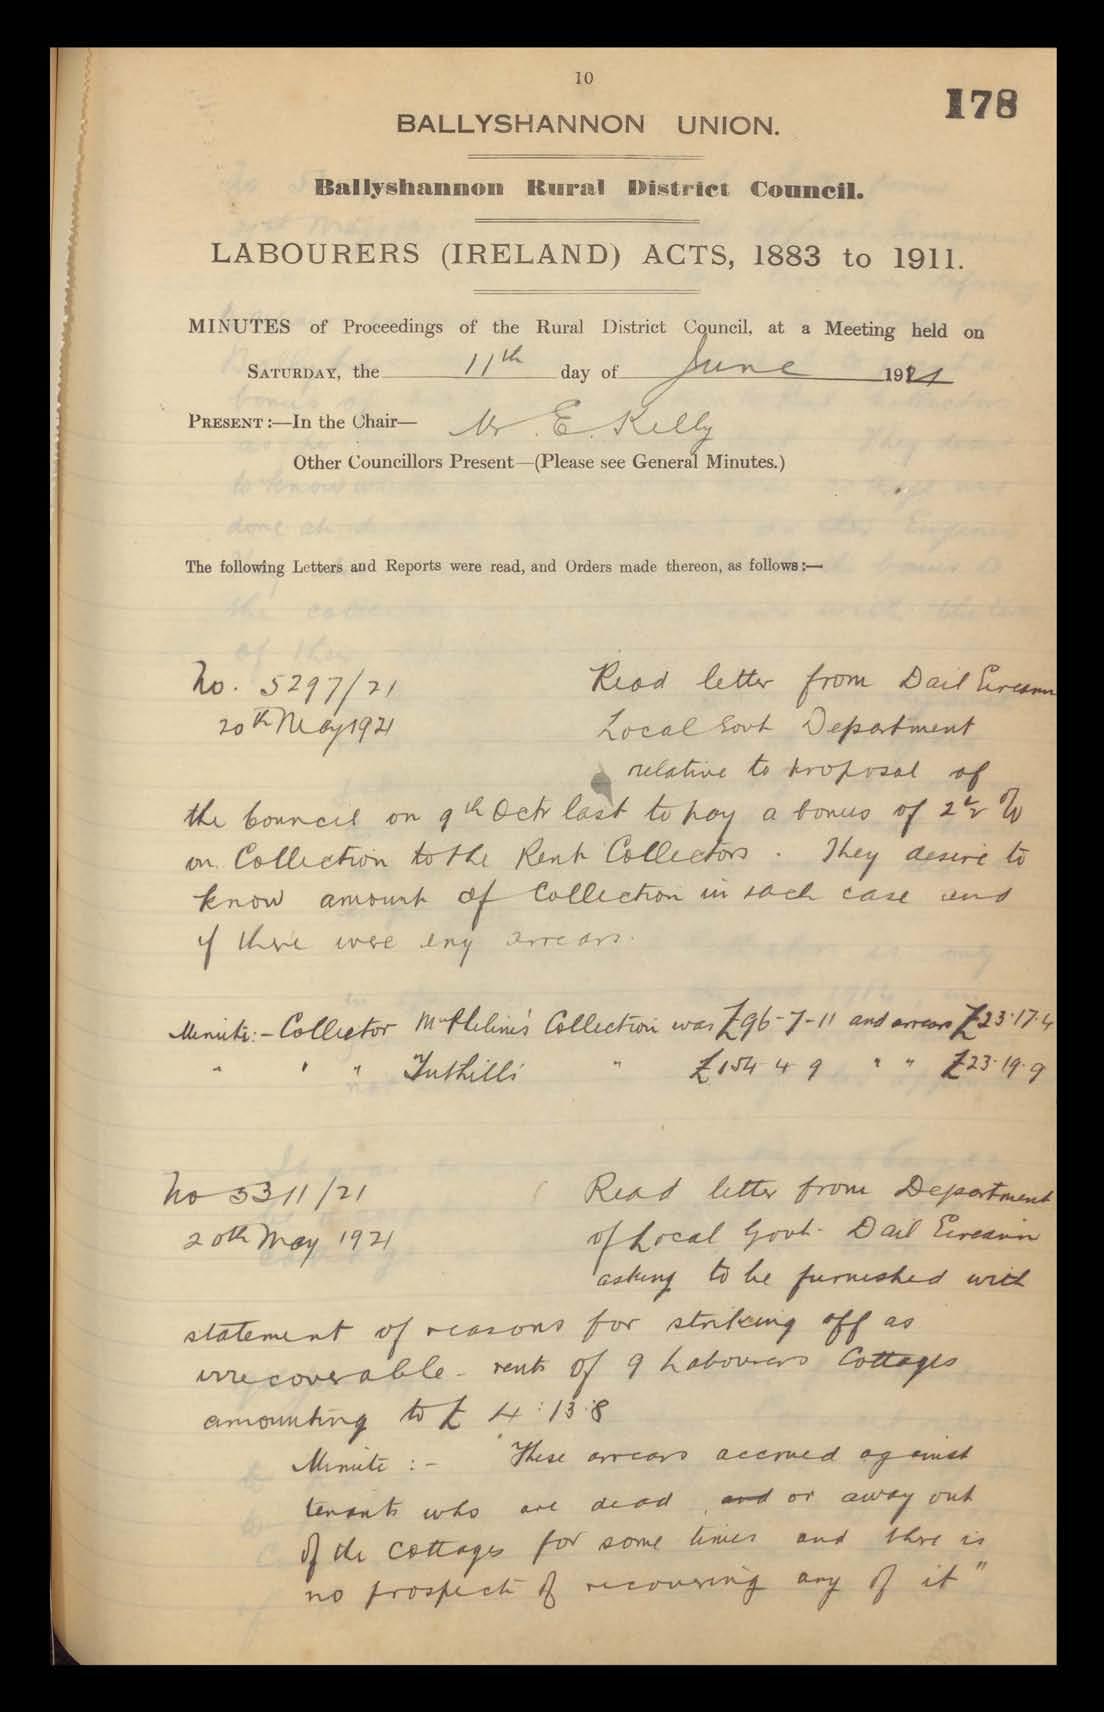 10
178
BALLYSHANNON UNION.
Ballyshannon Rural District Council.
LABOURERS (IRELAND) ACTS, 1883 to 1911.
MINUTES of Proceedings of the Rural District Council, at a Meeting held on
SATURDAY, the 11th day of June 1921
PRESENT:—In the Chair— Mr. E. Kelly
Other Councillors Present—(Please see General Minutes.)
The following Letters and Reports were read, and Orders made thereon, as follows:—
No. 5297/21 Read letter from Dail Eireann
20th May 1921 Local Govt Department
relative to proposal of
the Council on 9th Octr last to pay a bonus of 2½ %
on Collection to the Rent Collectors. They desire to
know amount of Collection in each case and
if there were any arrears.
Minute:- Collector McPhelim's Collection was £96-7-11 and arrears £23·17·4
" " " Tuthill's " £154-4-9 " " £23·19·9
No 5311/21 Read letter from Department
20th May 1921 of Local Govt. Dail Eireann
asking to be furnished with
statement of reasons for striking off as
irrecoverable - rents of 9 Labourers Cottages
amounting to £4:13:8
Minute:- "These arrears accrued against
tenants who are dead and or away out
of the cottages for some times and there is
no prospect of recovering any of it"